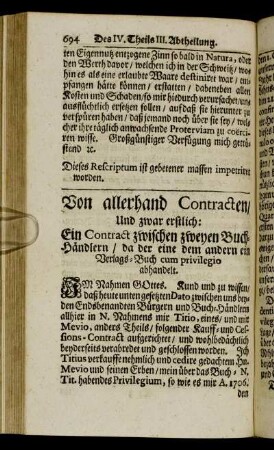 694 Des IV. Theils III. Abtheilung.
ten Eigennutz entzogene Zinn so bald in Natura, oder
den Werth davor / welchen ich in der Schweitz / wo-
hin es als eine erlaubte Waare destiniret war / ent-
pfangen hätte können / erstatten / dabeneben allen
Kosten und Schaden / so mir hiedurch verursachet / un-
ausflüchtlich ersetzen sollen / auf daß sie hierunter zu
verspüren haben / daß jemand noch über sie sey / wel-
cher ihre täglich anwachsende Proterviam zu coërci-
ren wisse. Großgünstiger Verfügung mich getrö-
stend ꝛc.
Dieses Rescriptum ist gebetener massen impetrirt
worden.
Von allerhand Contracten /
Und zwar erstlich:
Ein Contract zwischen zweyen Buch-
Händlern / da der eine dem andern ein
Verlags-Buch cum privilegio
abhandelt.
IM Nahmen GOttes. Kund und zu wissen /
daß heute unten gesetzten Dato zwischen uns bey-
den Endsbenandten Bürgern und Buch-Händlern
allhier in N. Nahmens mir Titio, eines / und mir
Mevio, anders Theils / folgender Kauff- und Ces-
sions-Contract aufgerichtet / und wohlbedächtlich
beyderseits verabredet und geschlossen worden. Ich
Titius verkauffe nehmlich und cedire gedachtem Hn.
Mevio und seinen Erben / mein über das Buch - N.
Tit. habendes Privilegium, so wie es mir A. 1706.
den